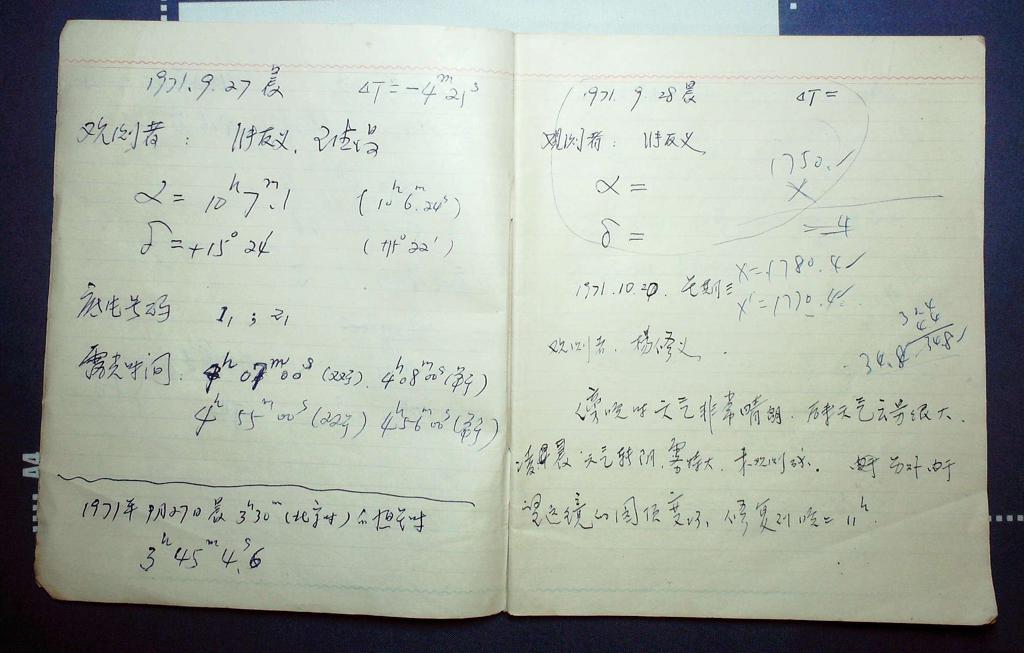 1971.9.27晨 ΔT=-4ᵐ21ˢ
观测者:
α=10ʰ7ᵐ.1 (10ʰ6ᵐ.24ˢ)
δ=+15°24′ (+15°22′)
底片号码 1₁;2₁
露光时间: 4ʰ07ᵐ00ˢ(22号). 4ʰ08ᵐ00ˢ
4ʰ55ᵐ00ˢ(22号) 4ʰ56ᵐ00ˢ
1971年9月27日晨3ʰ30ᵐ(北京时)的恒星时
3ʰ45ᵐ4ˢ.6
1971.9.28晨 ΔT=
观测者:
α=
δ=
1750.
X
=4
1971.10.20. 星期三
X=1780.4
X′=1770.4
观测者. 杨修义.
34.8
傍晚时天气非常晴朗. 天气云量很大.
凌晨 天气转阴,雾特大,未观测成。由于另外由于
望远镜的圆顶坏, 修复到晚二11ʰ.